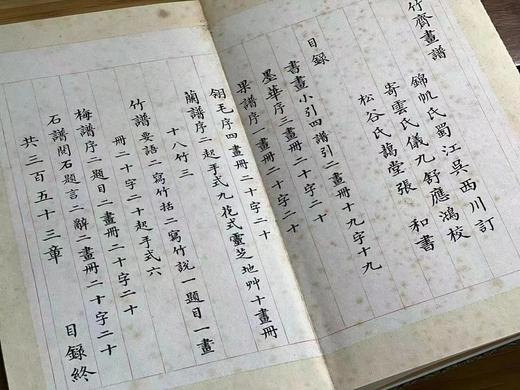 竹齊畫譜
錦帆氏蜀江吳西川訂
寄雲氏儀九舒應鴻校
松谷氏藹堂張和書
目錄
書畫小引四譜引二畫冊十九字十九
墨華序三畫冊二十字二十
果譜序一畫冊二十字二十
翎毛序四畫冊二十字二十
蘭譜序二起手式九花式靈芝地艸十畫冊
十八竹三
竹譜要語二寫竹括二寫竹說一題目一畫
冊二十字二十起手式六
梅譜序二題目二畫冊二十字二十
石譜閱石題言二辭二畫冊二十字二十
共三百五十三章
目錄終